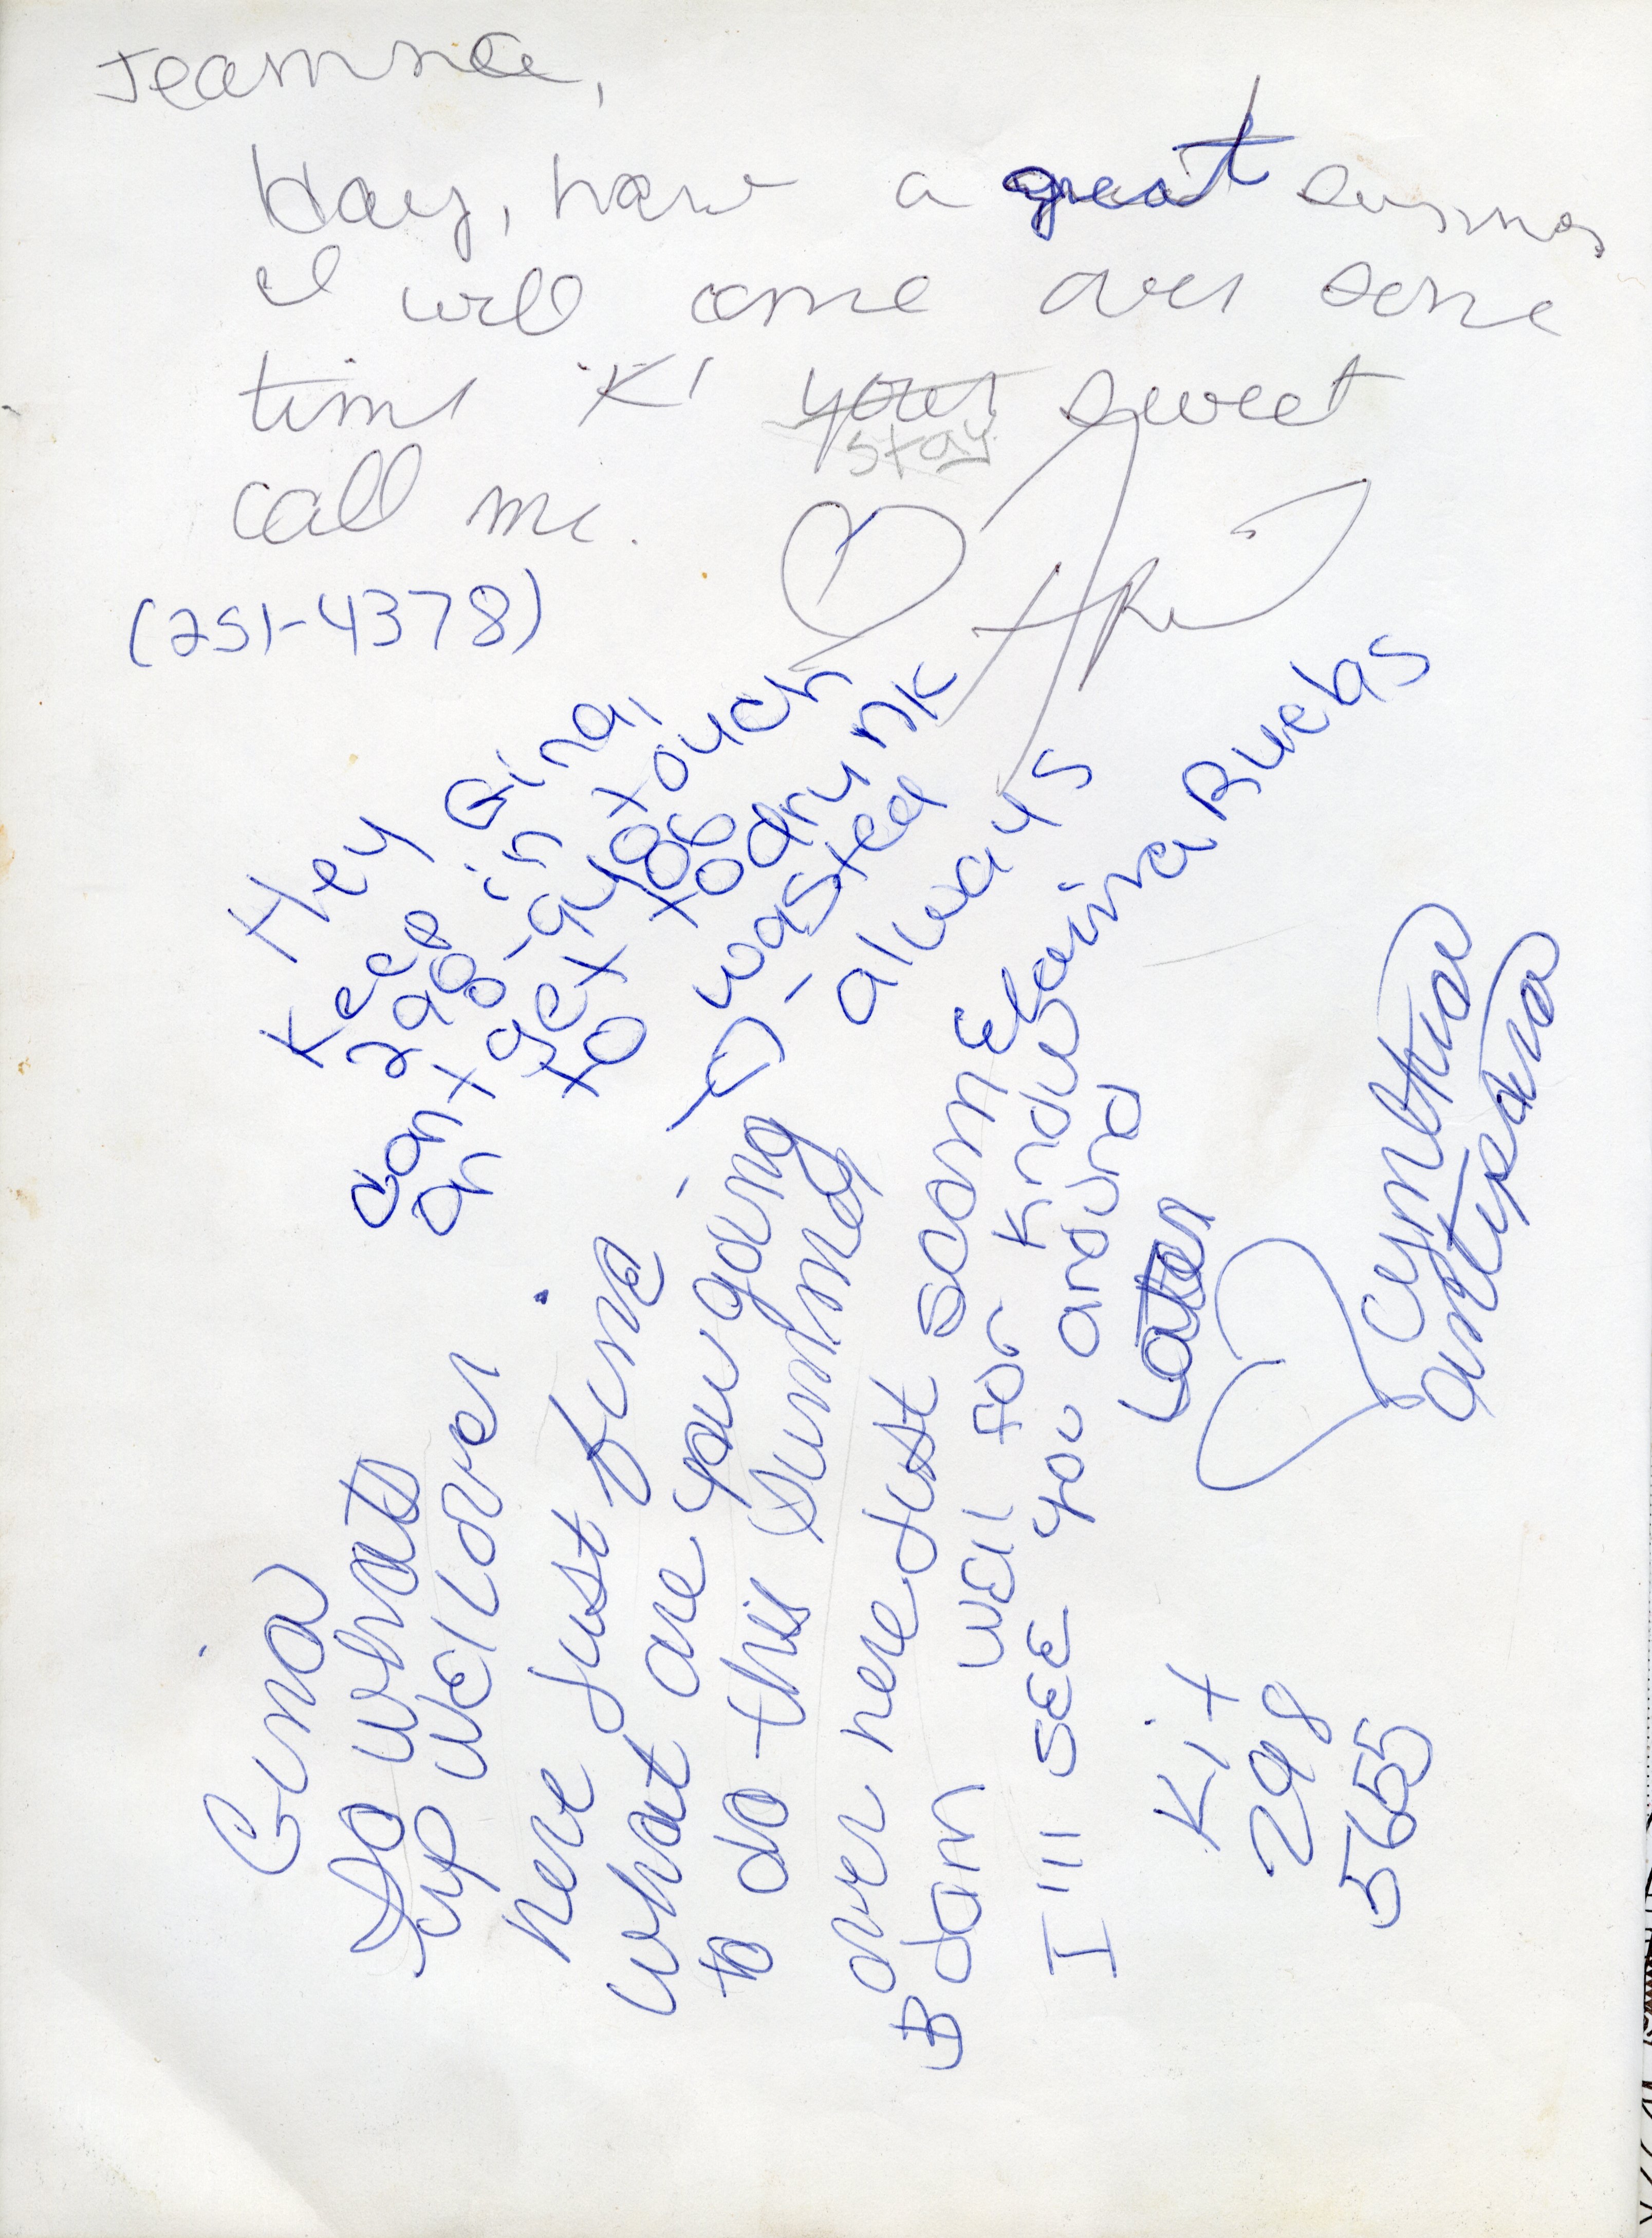 Jeannie,
Hay, have a great summer
I will come over some
time K! your sweet
stay
call me.
(251-4378)
Hey Gina,
Keep in touch
Don't get to
to drunk
wasted
always
Elvira Buebas
Gina
So whats
up well over
here Just fine
what are you going
to do this Summer
over here Just soom
Bdom well for know
I'll SEE you around
Later
Cynthia
Kit
298
5655